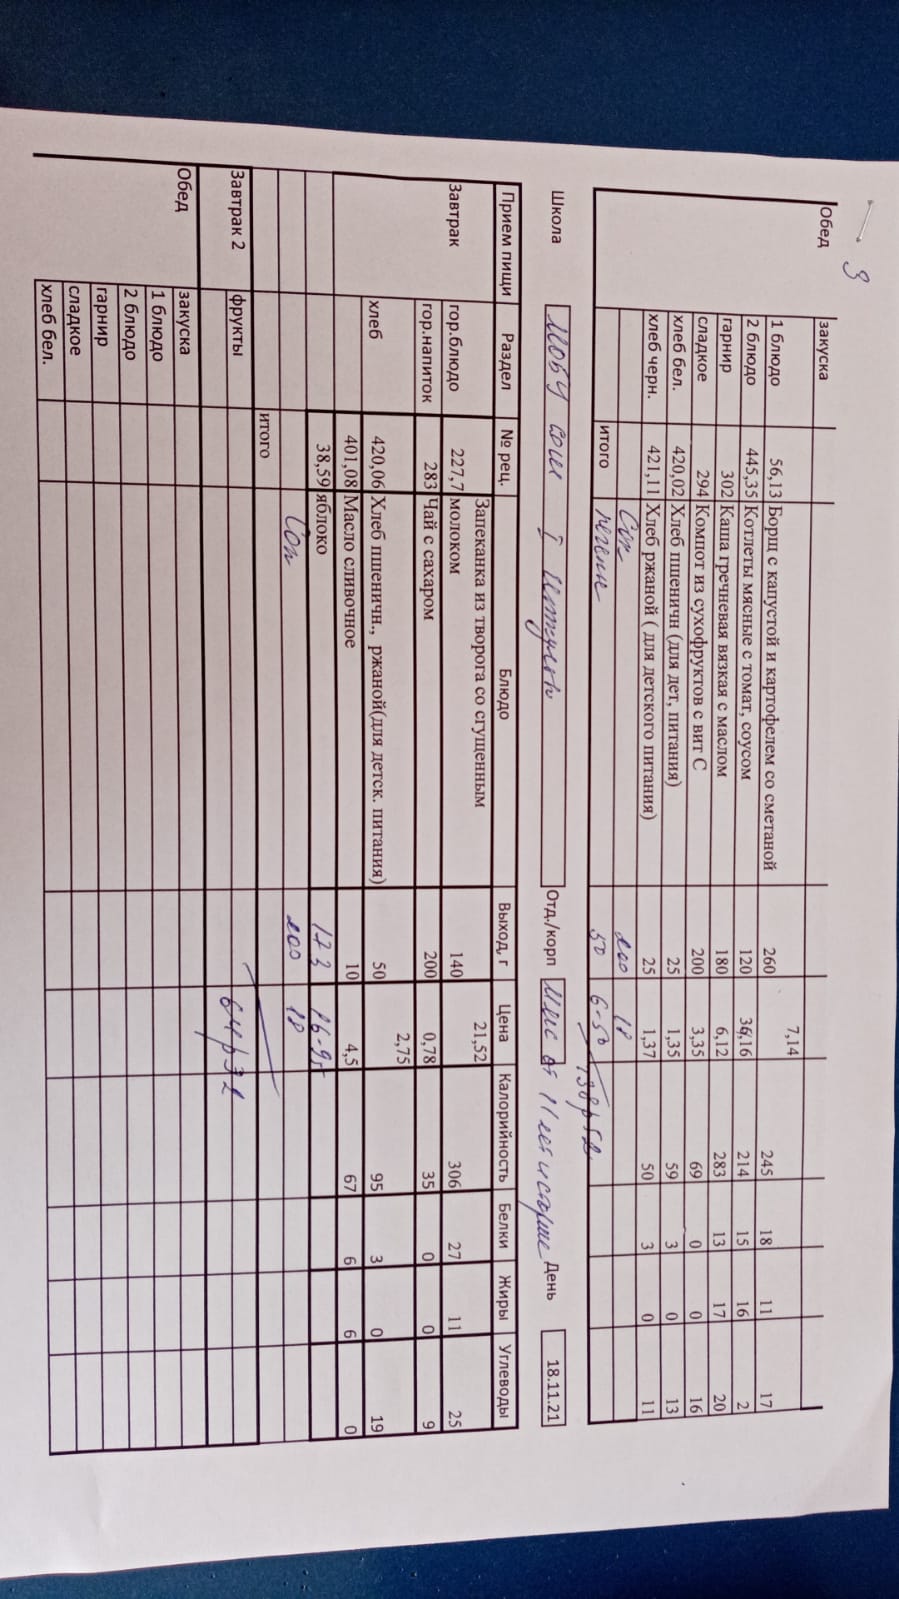 3
Обед закуска
7,14
1 блюдо 56,13 Борщ с капустой и картофелем со сметаной 260 245 18 11 17
2 блюдо 445,35 Котлеты мясные с томат, соусом 120 36,16 214 15 16 2
гарнир 302 Каша гречневая вязкая с маслом 180 6,12 283 13 17 20
сладкое 294 Компот из сухофруктов с вит С 200 3,35 69 0 0 16
хлеб бел. 420,02 Хлеб пшеничн (для дет, питания) 25 1,35 59 3 0 13
хлеб черн. 421,11 Хлеб ржаной ( для детского питания) 25 1,37 50 3 0 11
Сок 200 18
итого 50 6-50
Школа МОБУ СОШ Отд./корп от 11 лет и старше День 18.11.21
Прием пищи Раздел № рец. Блюдо Выход, г Цена Калорийность Белки Жиры Углеводы
Запеканка из творога со сгущенным 21,52
Завтрак гор.блюдо 227,7 молоком 140 306 27 11 25
гор.напиток 283 Чай с сахаром 200 0,78 35 0 0 9
2,75
хлеб 420,06 Хлеб пшеничн., ржаной(для детск. питания) 50 95 3 0 19
401,08 Масло сливочное 10 4,5 67 6 6 0
38,59 яблоко 173 16-95
Сок 200 18
итого
Завтрак 2 фрукты 64р32
Обед закуска
1 блюдо
2 блюдо
гарнир
сладкое
хлеб бел.